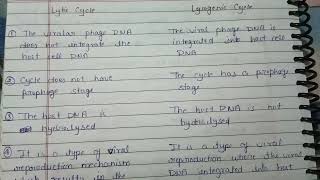 Lytic Cycle Lysogenic Cycle
① The viral phage DNA The viral phage DNA is
does not integrate the integrated into host cell
host cell DNA DNA
② Cycle does not have The cycle has a prophage
prophage stage stage
③ The host DNA is The host DNA is not
hydrolysed hydrolysed
④ It is a type of viral It is a type of viral
reproduction mechanism reproduction where the viral
which results in the DNA integrated into host